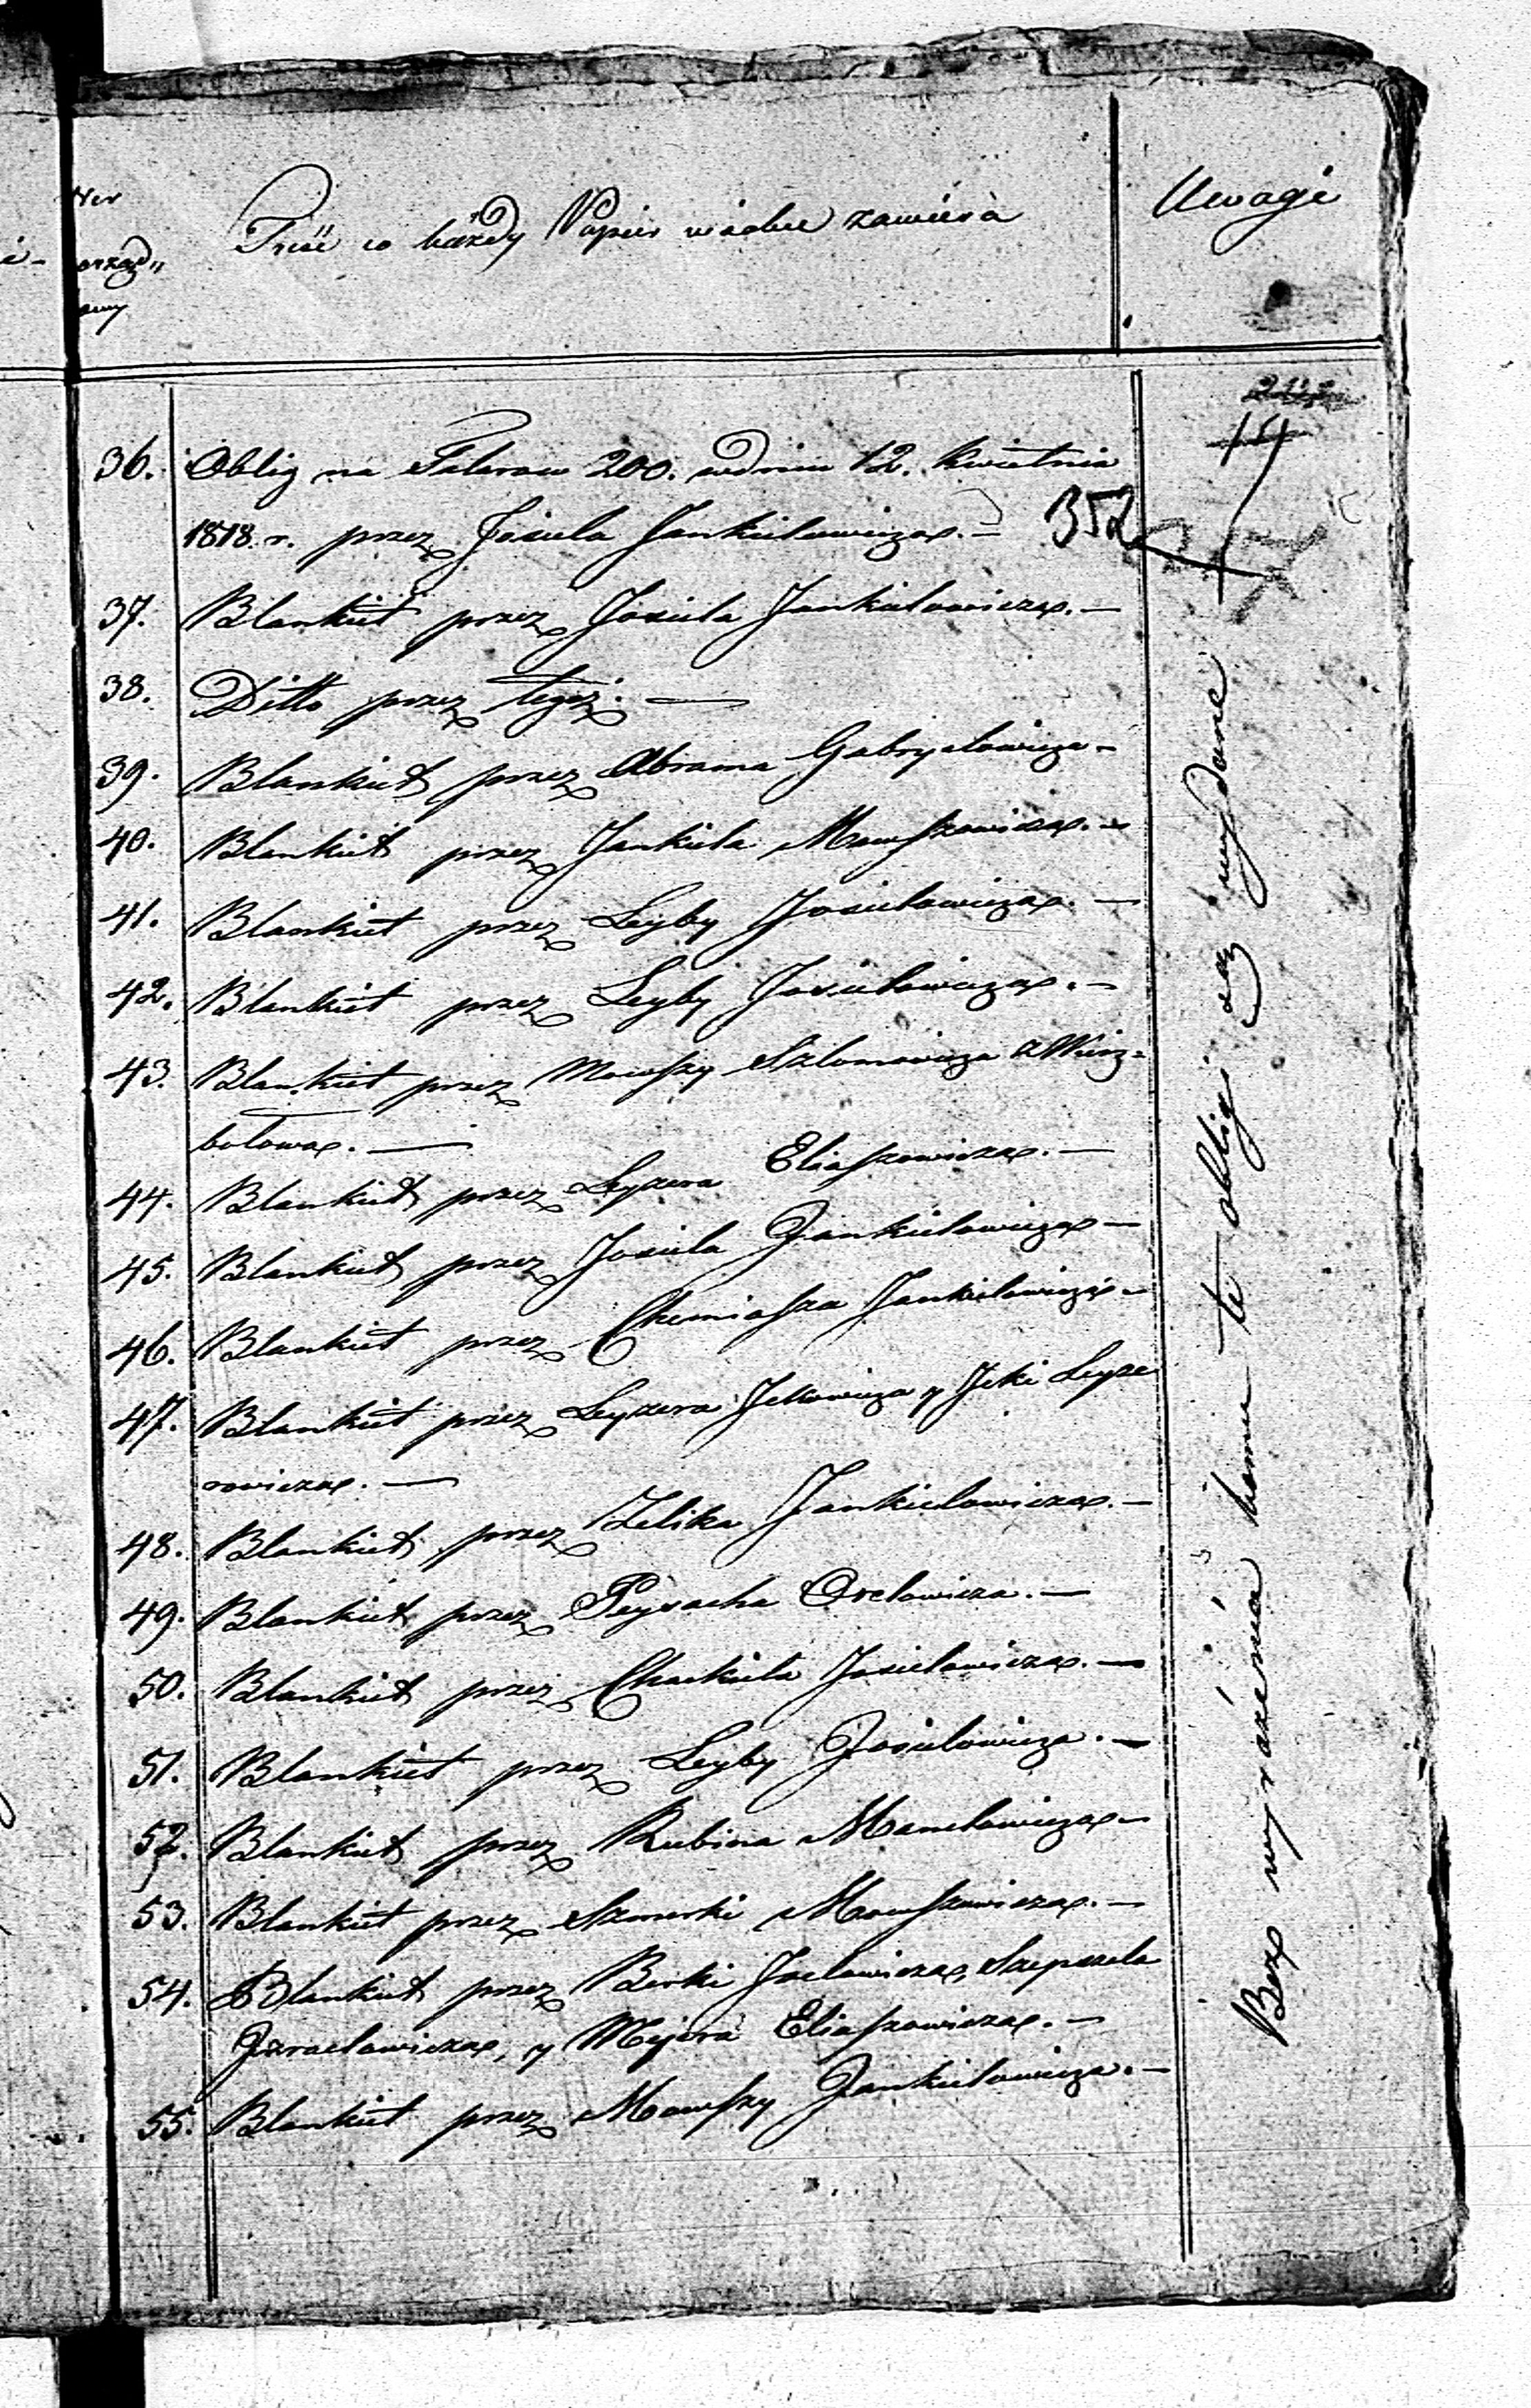 Ner
porząd„
kowy
Treść co każdy Papier w sobie zawiéra
Uwagi
36. Oblig na Talarow 200. w dniu 12. Kwietnia
1818. r. przez Josiela Jankielowicza. —
352
14
37. Blankiet przez Josiela Jankielowicza. —
38. Ditto przez tegoż. —
39. Blankiet przez Abrama Gabryelowicza —
40. Blankiet przez Jankiela Mowszowicza. —
41. Blankiet przez Leyby Josielowicza. —
42. Blankiet przez Leyby Josielowicza. —
43. Blankiet przez Mowszy Szlomowicza z Wierz=
bołowa. —
44. Blankiet przez Leyzera Eliaszowicza. —
45. Blankiet przez Josiela Jankielowicza —
46. Blankiet przez Chemiasza Jankielowicza —
47. Blankiet przez Leyzera Jckowicza y Jcki Leyze
rowicza. —
48. Blankiet przez Zelika Jankielowicza. —
49. Blankiet przez Peysacha Orelowicza. —
50. Blankiet przez Chackiela Josielowicza. —
51. Blankiet przez Leyby Josielowicza. —
52. Blankiet przez Rubina Manelowicza —
53. Blankiet przez Szmerki Mowszowicza. —
54. Blankiet przez Berki Joelowicza, Szepszela
Jzraelowicza, y Mejera Eliaszowicza. —
55. Blankiet przez Mowszy Jankielowicza. —
Bez wyrażenia komu te obligi są wydane